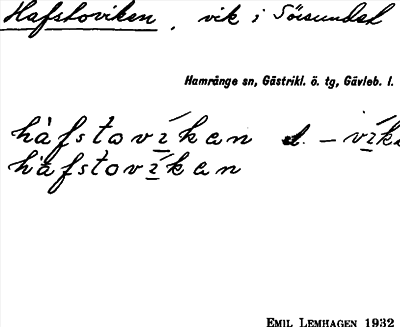 Hafstoviken, vik i Sösundet
Hamrånge sn, Gästrikl. ö. tg, Gävleb. l.
hàfstovíkan d. – vík
hàfstovíkan
EMIL LEMHAGEN 1932